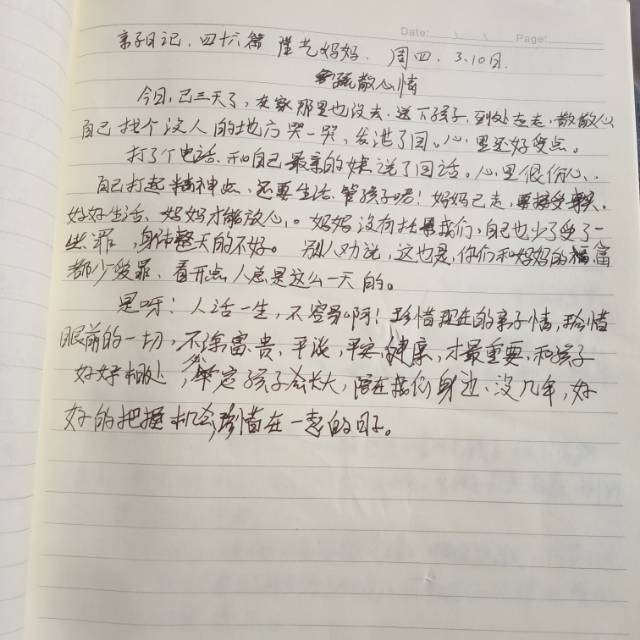 Date: Page:
亲子日记.四十六篇 妈妈. 周四.3.10日.
散心情
今日,已三天了,在家那里也没去.送下孩子,到处走走,散散心
自己找个没人的地方哭一哭,发泄了回.心里还好受点.
打了个电话.和自己最亲的妹说了回话.心里很伤心..
自己打起精神点、还要生活.管孩子呢!妈妈已走,要接受
好好生活、妈妈才能放心.。妈妈没有拄累我们,自己也少受了一
些罪,身体整天的不好。别人劝说,这也是,你们和妈妈的福.
都少受罪.看开点人总是这么一天的。
是呀!人活一生,不容易啊!珍惜现在的亲子情,珍惜
眼前的一切,不论富贵、平淡,平安,健康,才最重要.和孩子
好好相处,孩子会长大,陪在我们身边、没几年,好
好的把握机会,珍惜在一起的日子。